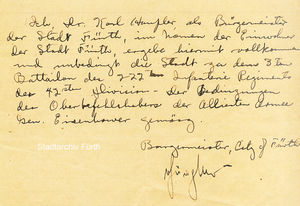 Ich, Dr. Karl Häupler als Bürgermeister
der Stadt Fürth, im Namen der Einwohner
der Stadt Fürth, ergebe hiermit vollkommen
und unbedingt die Stadt zu dem 3ten
Battailon des 222ten Infanterie Regiments
des 42sten Division - den Bedingungen
des Oberbefehlshabers der Allierten Armee
Gen. Eisenhower gemäss.
Burgermeister, City of Fürth
Stadtarchiv Fürth